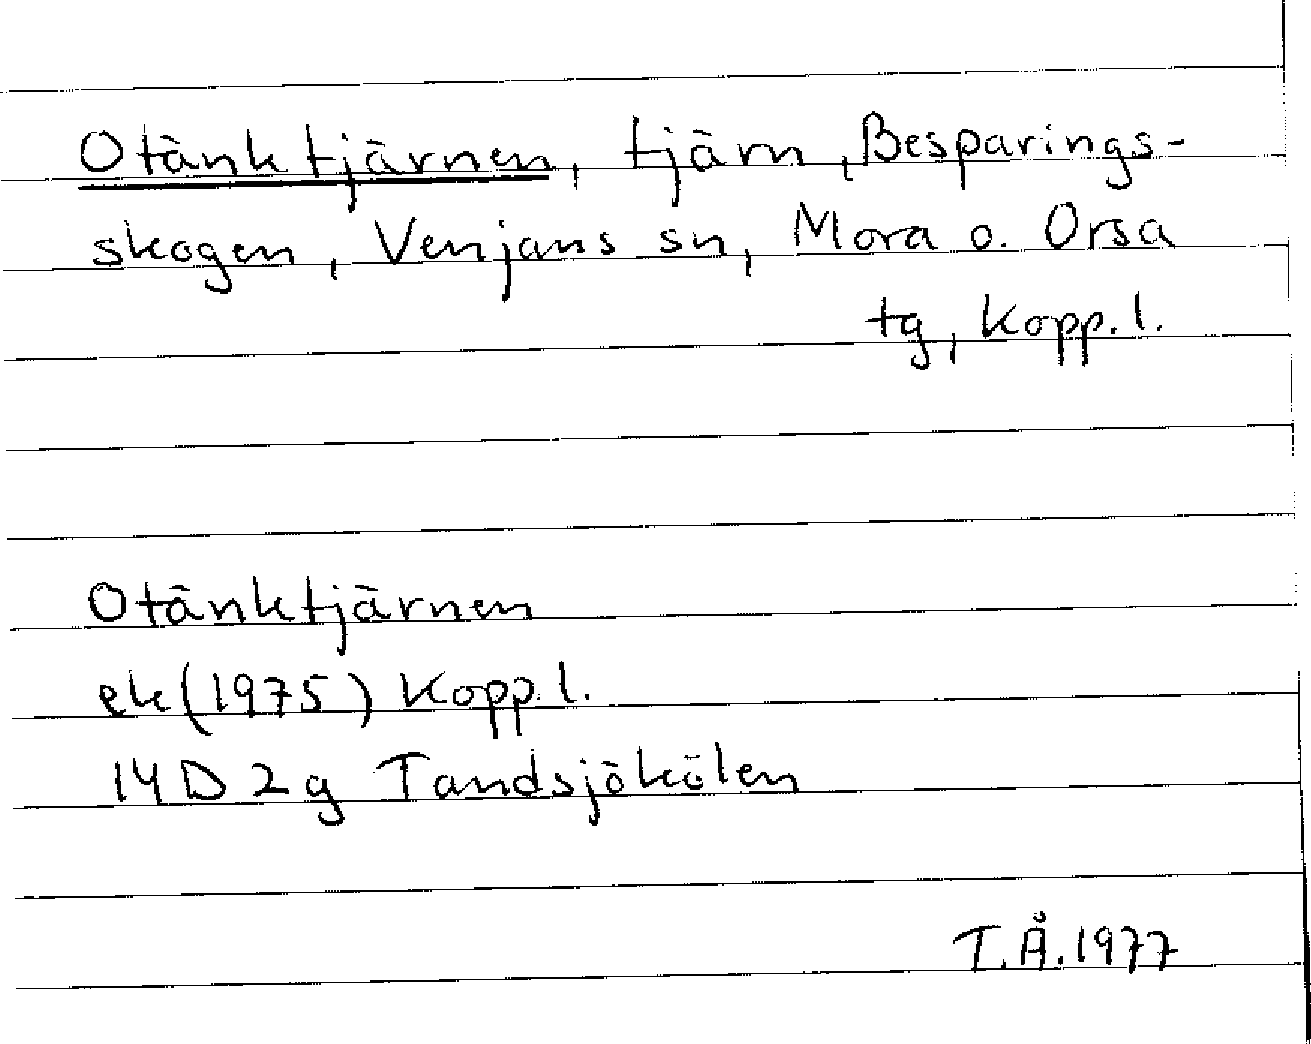 Otänktjärnen, tjärn, Besparings-
skogen, Venjans sn, Mora o. Orsa
tg, Kopp. l.
Otänktjärnen
ek (1975) Kopp. l.
14D 2g Tandsjökölen
T.Å. 1977